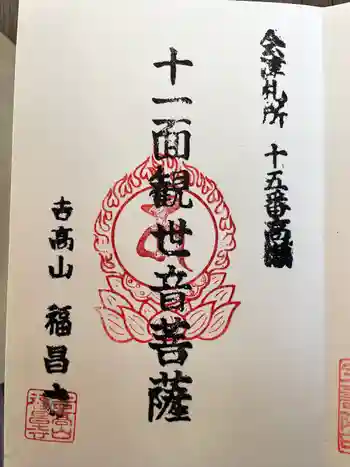 会津札所 十五番高瀬
十一面観世音菩薩
古高山 福昌寺